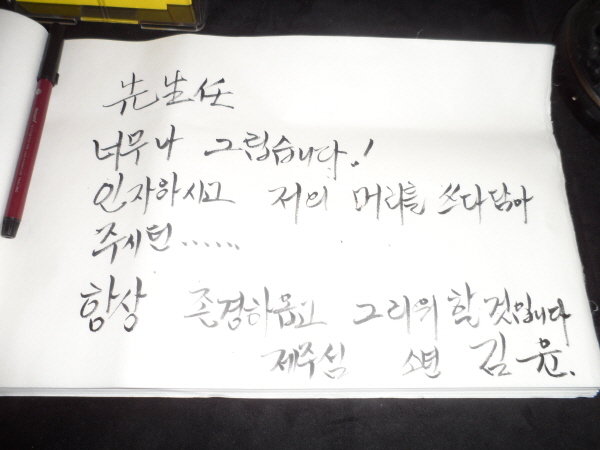 先生任
너무나 그립습니다.!
인자하시고 저의 머리를 쓰다담아
주시던......
항상 존경하옵고 그리워 할 것입니다
제주섬 소년 김윤.